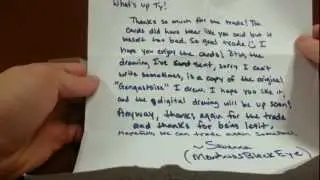 What's up Ty!
Thanks so much for the trade! The
cards did have wear like you said but it
wasn't too bad. So great trade. I
hope you enjoy the cards! Btw, the
drawing I've sent, sorry I can't
write sometimes, is a copy of the original
"Gengastoise" I drew. I hope you like it,
and the digital drawing will be up soon!
Anyway, thanks again for the trade
and thanks for being legit.
Hopefully we can trade again sometime.
~Savanna